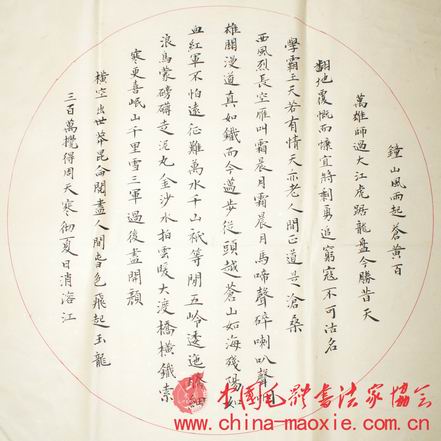 鐘山風雨起蒼黃百
萬雄師過大江虎踞龍盤今勝昔天
翻地覆慨而慷宜將剩勇追窮寇不可沽名
學霸王天若有情天亦老人間正道是滄桑
西風烈長空雁叫霜晨月霜晨月馬蹄聲碎喇叭聲咽
雄關漫道真如鐵而今邁步從頭越蒼山如海殘陽如
血紅軍不怕遠征難萬水千山祇等閒五嶺逶迤騰細
浪烏蒙磅礴走泥丸金沙水拍雲暖大渡橋橫鐵索
寒更喜岷山千里雪三軍過後盡開顏
橫空出世莽昆侖閱盡人間春色飛起玉龍
三百萬攪得周天寒徹夏日消溶江
中國毛體書法家協會
www.china-maoxie.com